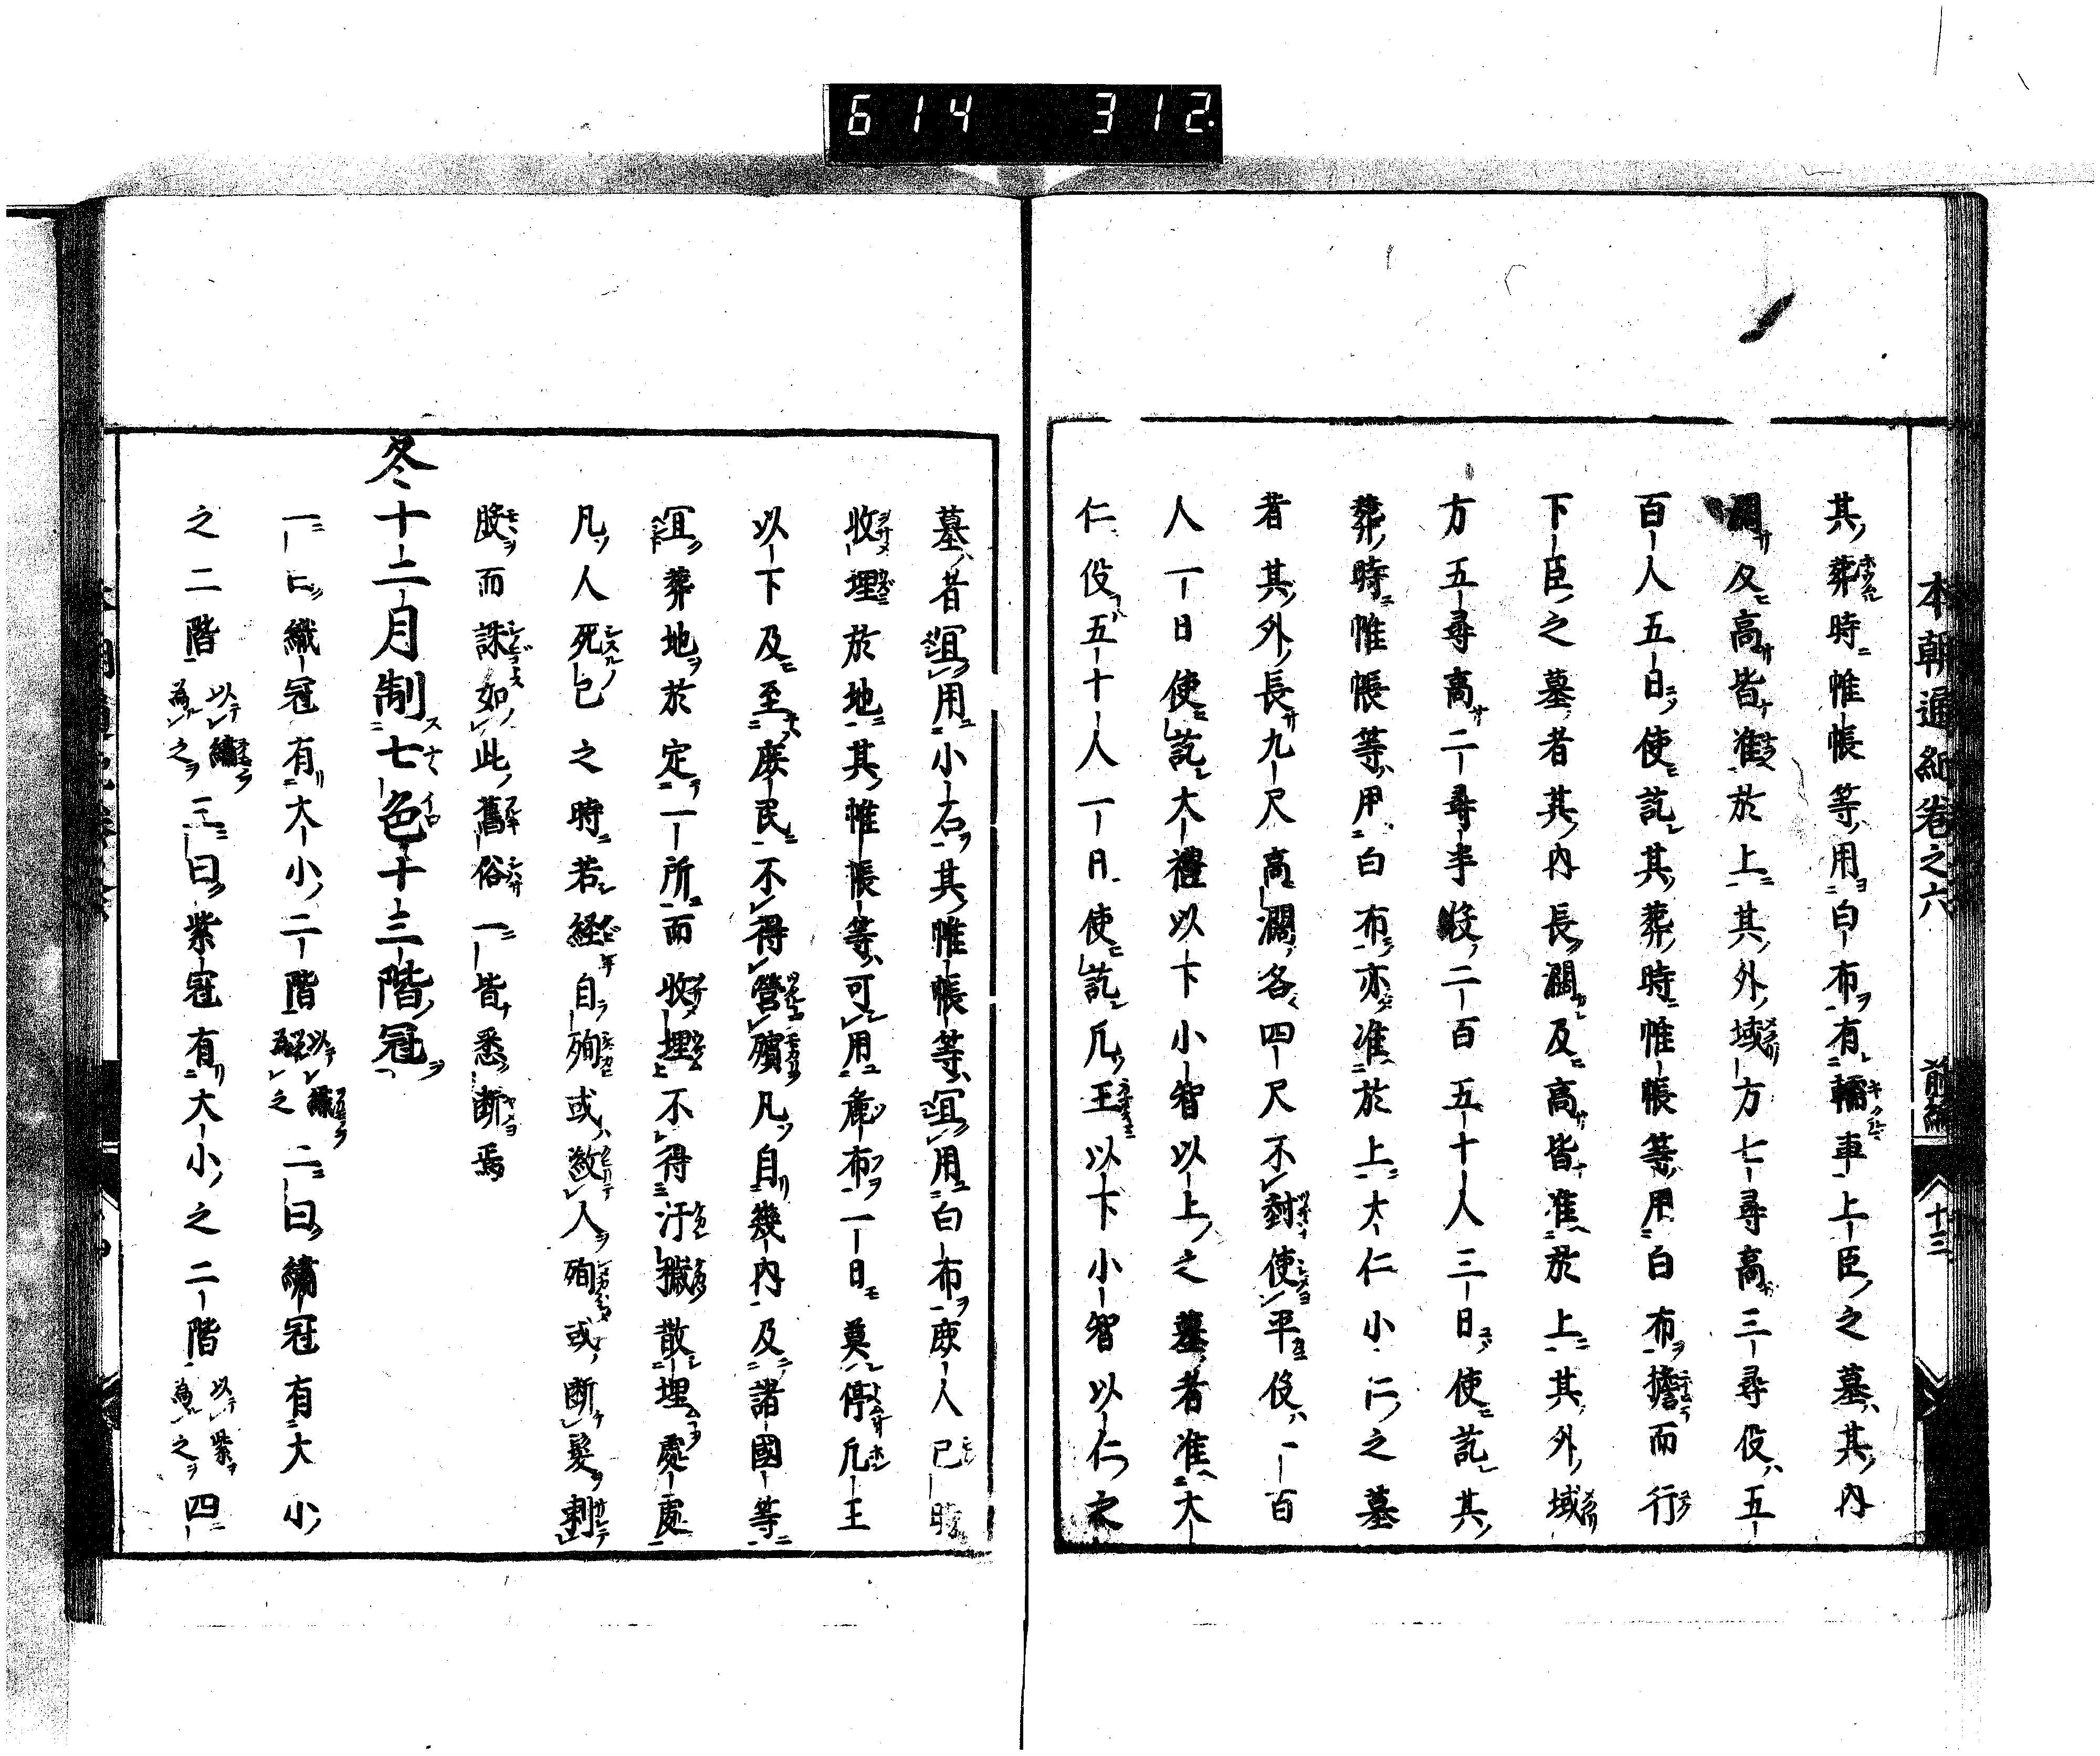 614 312
本朝通紀卷之六 前編 十三
其葬時帷帳等用白布有轜車上臣之墓其內
濶及高皆准於上其外域方七尋高三尋役五
百人五日使訖其葬時帷帳等用白布擔而行
下臣之墓者其內長濶及高皆准於上其外域
方五尋高二尋半役二百五十人三日使訖其
葬時帷帳等用白布亦准於上大仁小仁之墓
者其外長九尺高濶各四尺不封使平役一百
人一日使訖大禮以下小智以上之墓者准大
仁役五十人一日使訖凡王以下小智以仁之
墓者宜用小石其帷帳等宜用白布庶人已時
收埋於地其帷帳等可用麁布一日莫停凡王
以下及至庶民不得營殯凡自幾內及諸國等
宜葬地於定一所而收埋不得汙穢散埋處處
凡人死已之時若経自殉或絞人殉或断髮刺
股而誄如此舊俗一皆悉断焉
冬十二月制七色十三階冠
一曰織冠有大小二階以織為之二曰繡冠有大小
之二階以繡為之三曰紫冠有大小之二階以紫為之四